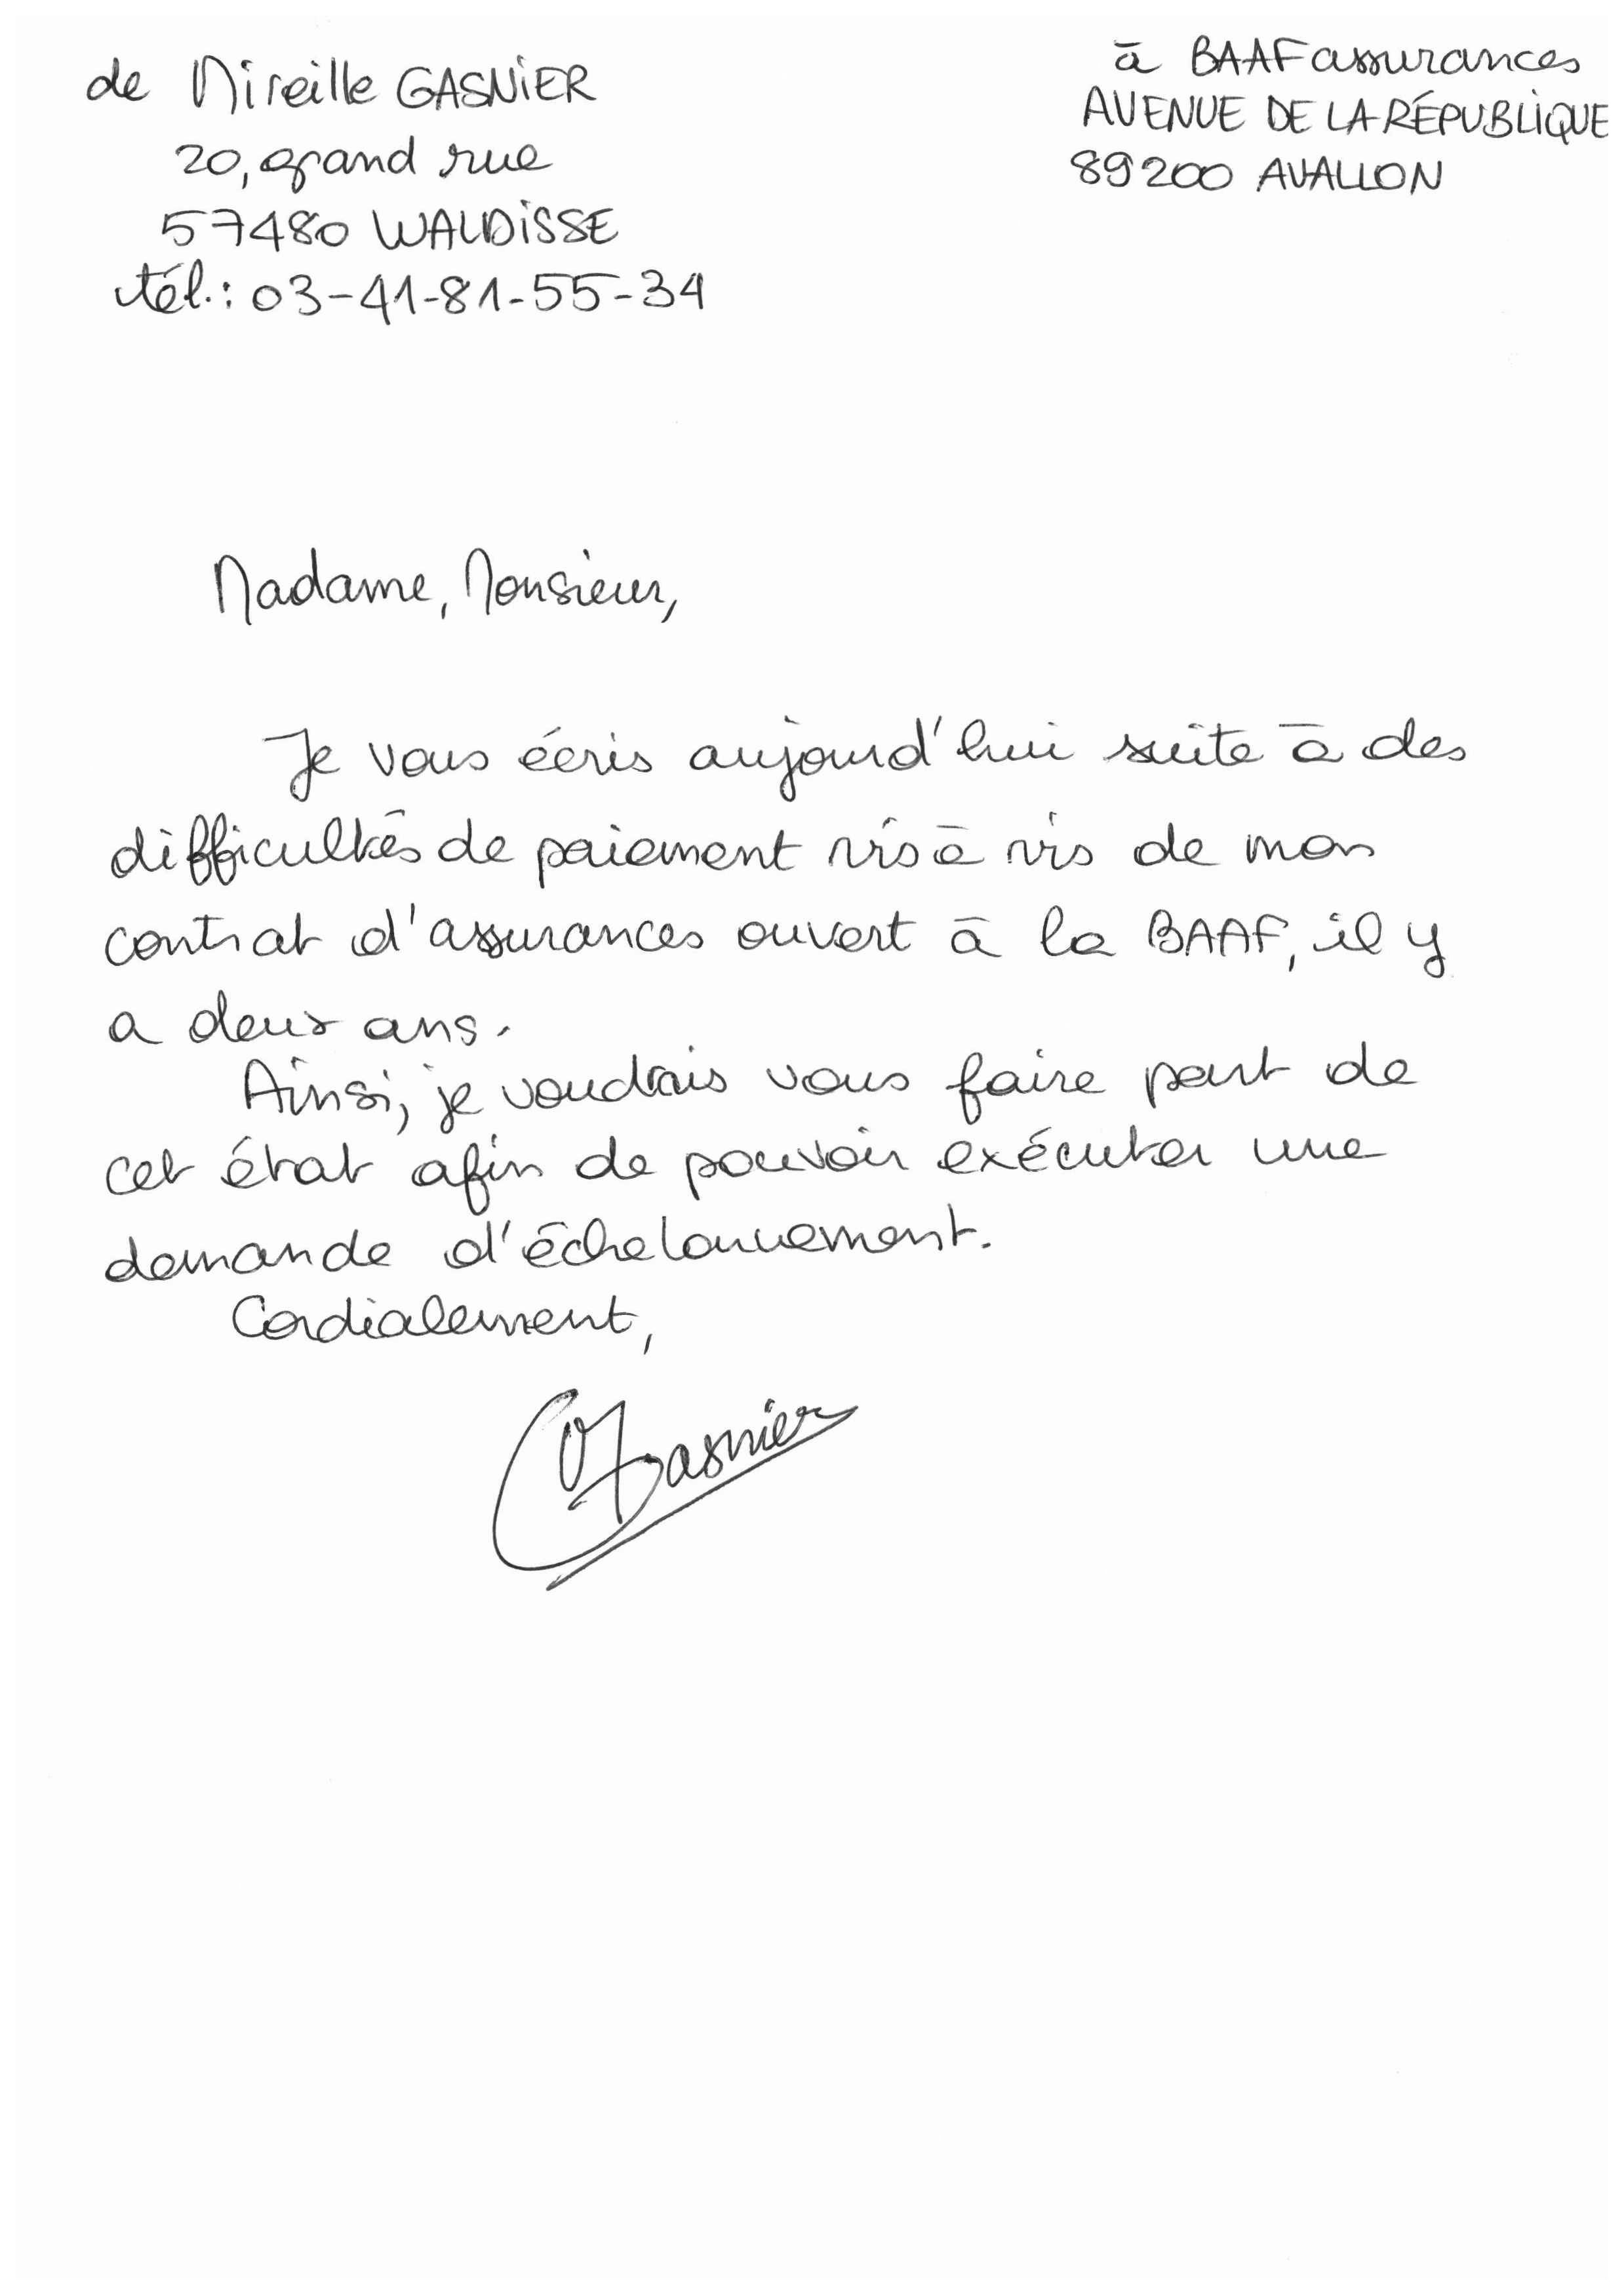 de Mireille GASNIER
20, grand rue
57480 WALDISSE
tél.: 03-41-81-55-34
à BAAF assurances
AVENUE DE LA RÉPUBLIQUE
89200 AVALLON
Madame, Monsieur,
Je vous écris aujourd'hui suite à des
difficultés de paiement vis à vis de mon
contrat d'assurances ouvert à la BAAF, il y
a deux ans.
Ainsi, je voudrais vous faire part de
cet état afin de pouvoir exécuter une
demande d'échelonnement.
Cordialement,
Gasnier